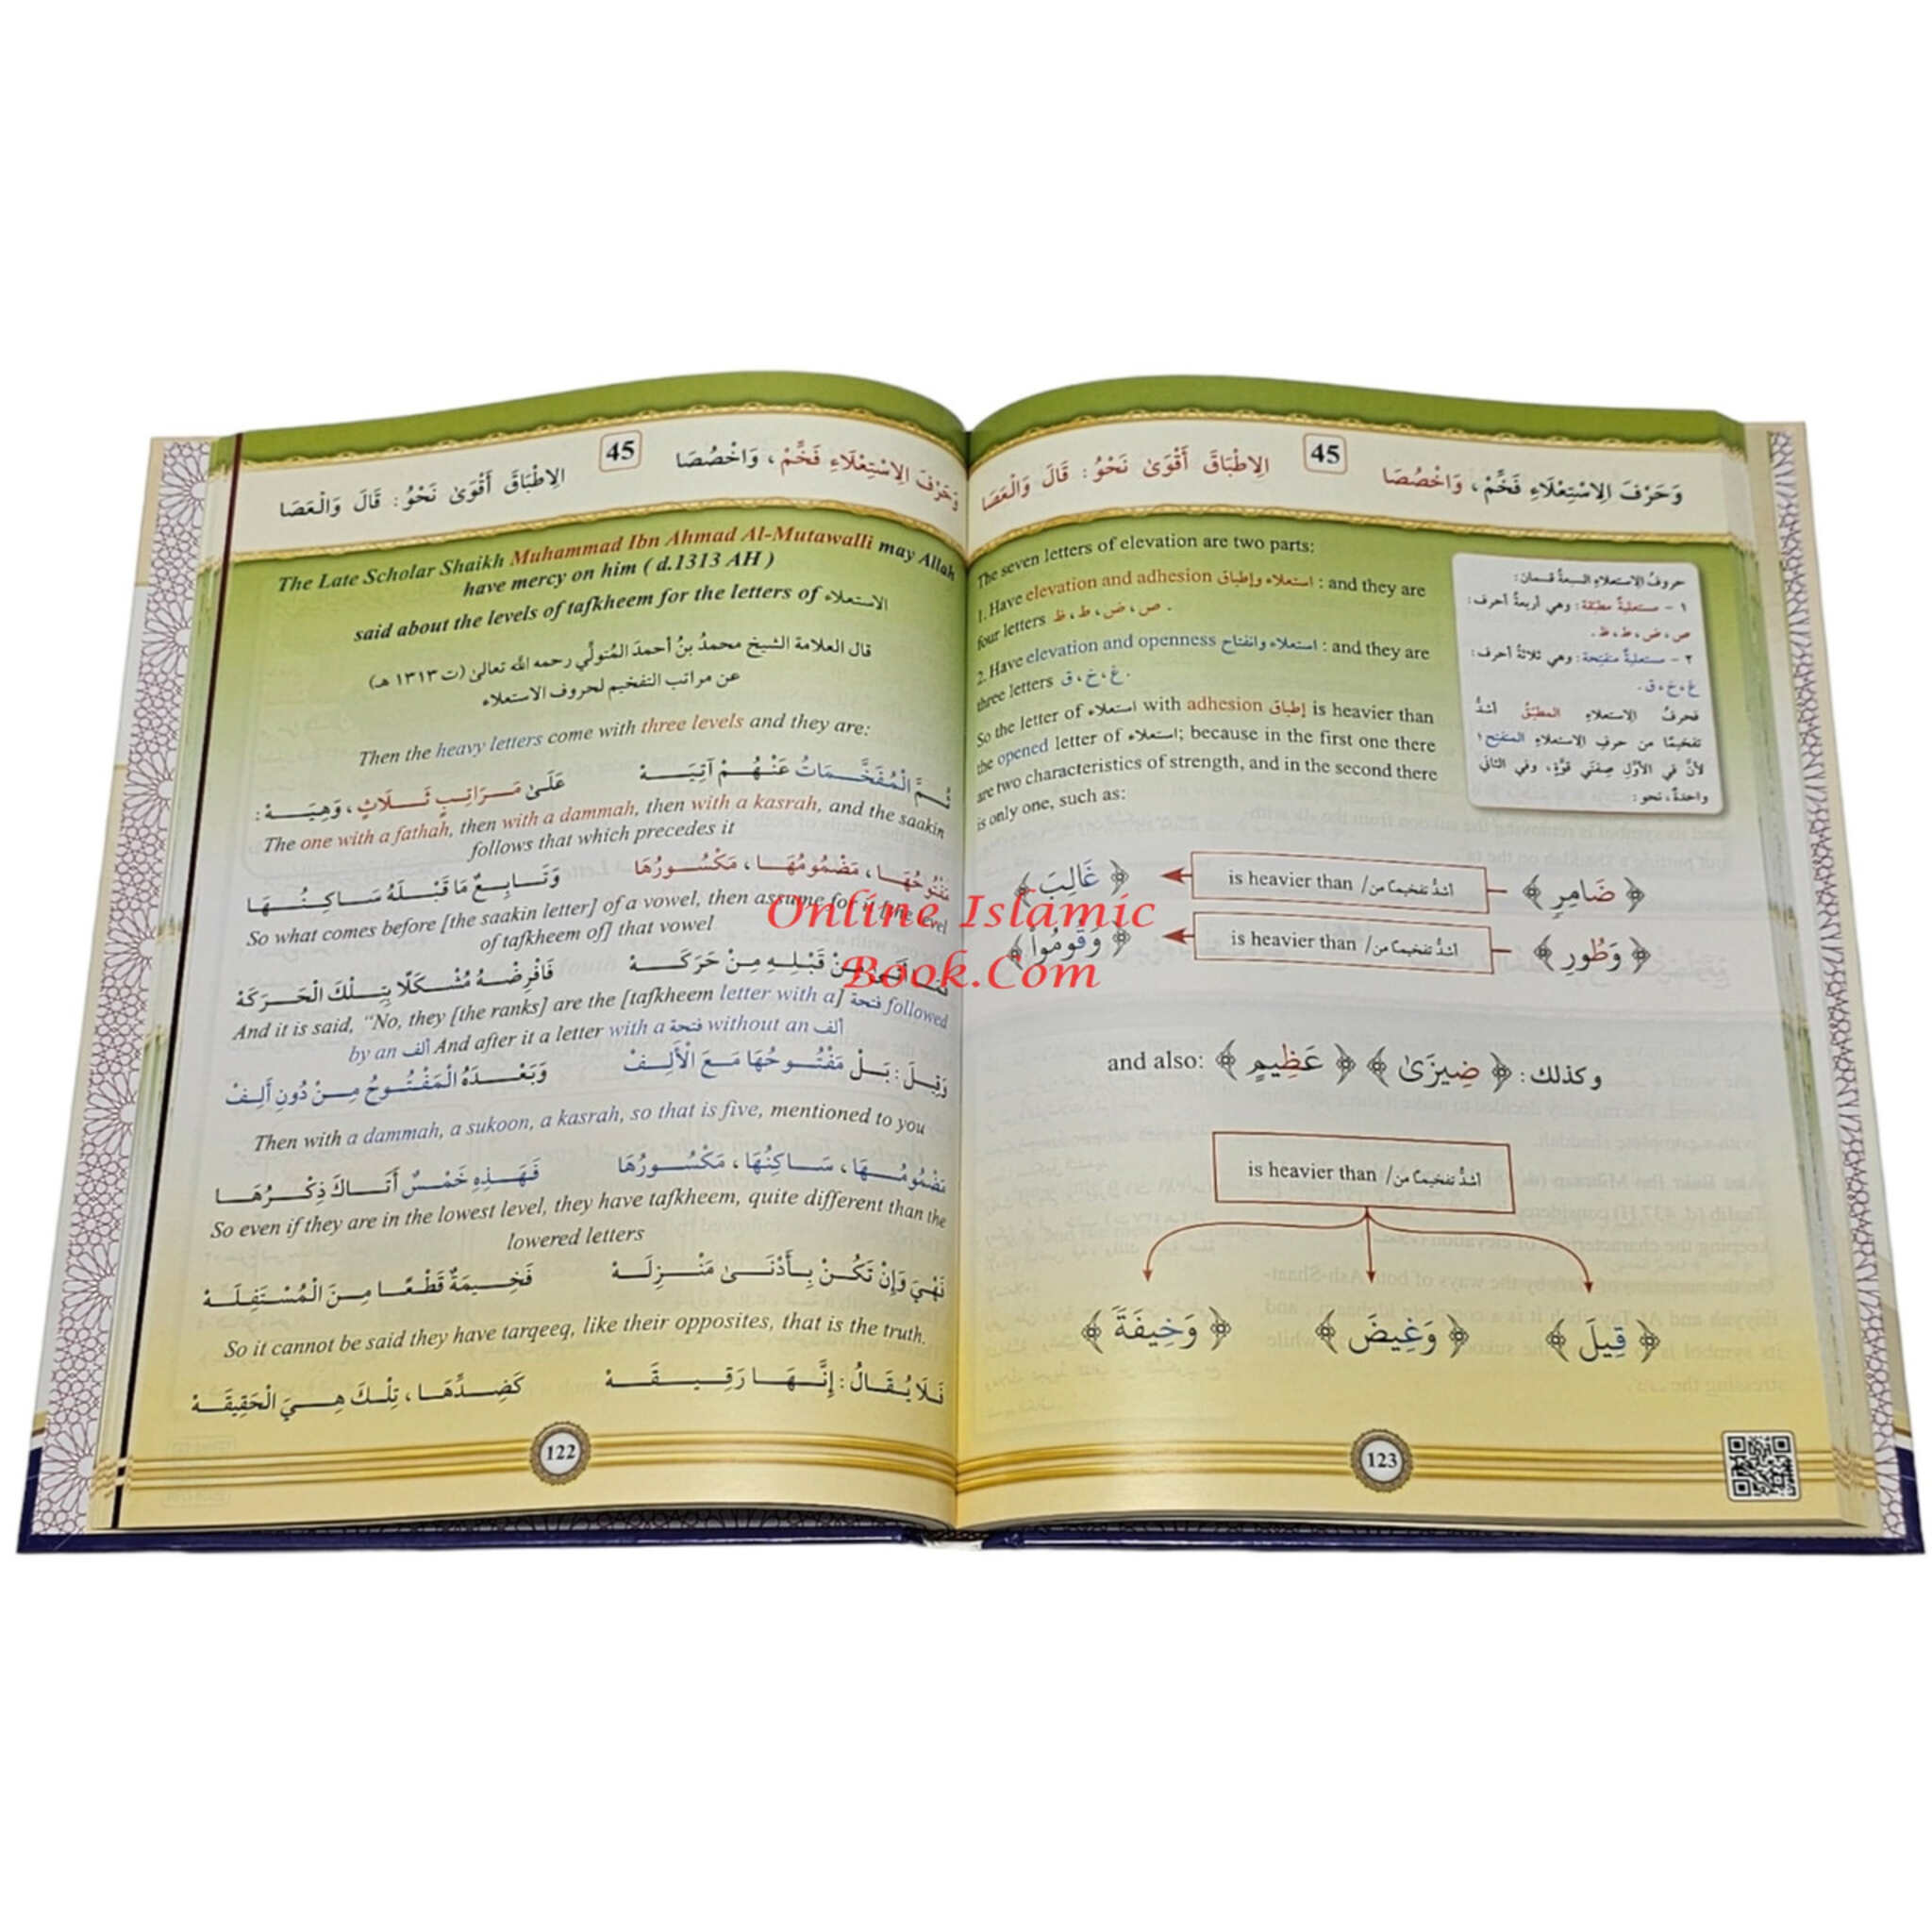 وَحَرْفَ الِاسْتِعْلَاءِ فَخِّمْ، وَاخْصُصَا 45 الِاطْبَاقَ أَقْوَىٰ نَحْوُ: قَالَ وَالْعَصَا
The Late Scholar Shaikh Muhammad Ibn Ahmad Al-Mutawalli may Allah
have mercy on him ( d.1313 AH )
said about the levels of tafkheem for the letters of الاستعلاء
قال العلامة الشيخ محمدُ بنُ أحمدَ المُتولِّي رحمه الله تعالى (ت ١٣١٣ هـ)
عن مراتب التفخيم لحروف الاستعلاء
Then the heavy letters come with three levels and they are:
ثُمَّ الْمُفَخَّمَاتُ عَنْهُمْ آتِيَهْ عَلَىٰ مَرَاتِبٍ ثَلَاثٍ، وَهِيَهْ:
The one with a fathah, then with a dammah, then with a kasrah, and the saakin
follows that which precedes it
مَفْتُوحُهَا، مَضْمُومُهَا، مَكْسُورُهَا وَتَابِعٌ مَا قَبْلَهُ سَاكِنُهَا
So what comes before [the saakin letter] of a vowel, then assume for it [the level
of tafkheem of] that vowel
مِنْ قَبْلِهِ مِنْ حَرَكَهْ فَافْرِضْهُ مُشْكَلًا بِتِلْكَ الْحَرَكَهْ
And it is said, “No, they [the ranks] are the [tafkheem letter with a] فتحة followed
by an ألف And after it a letter with a فتحة without an ألف
وَقِيلَ: بَلْ مَفْتُوحُهَا مَعَ الْأَلِفْ وَبَعْدَهُ الْمَفْتُوحُ مِنْ دُونِ أَلِفْ
Then with a dammah, a sukoon, a kasrah, so that is five, mentioned to you
مَضْمُومُهَا، سَاكِنُهَا، مَكْسُورُهَا فَهَذِهِ خَمْسٌ أَتَاكَ ذِكْرُهَا
So even if they are in the lowest level, they have tafkheem, quite different than the
lowered letters
فَهْيَ وَإِنْ تَكُنْ بِأَدْنَىٰ مَنْزِلَهْ فَخِيمَةٌ قَطْعًا مِنَ الْمُسْتَفِلَهْ
So it cannot be said they have tarqeeq, like their opposites, that is the truth.
فَلَا يُقَالُ: إِنَّهَا رَقِيقَهْ كَضِدِّهَا، تِلْكَ هِيَ الْحَقِيقَهْ
122
وَحَرْفَ الِاسْتِعْلَاءِ فَخِّمْ، وَاخْصُصَا 45 الِاطْبَاقَ أَقْوَىٰ نَحْوُ: قَالَ وَالْعَصَا
The seven letters of elevation are two parts:
1. Have elevation and adhesion استعلاء وإطباق : and they are
four letters ص، ض، ط، ظ .
2. Have elevation and openness استعلاء وانفتاح : and they are
three letters غ، خ، ق .
So the letter of استعلاء with adhesion إطباق is heavier than
the opened letter of استعلاء; because in the first one there
are two characteristics of strength, and in the second there
is only one, such as:
حروفُ الِاستعلاءِ السبعةُ قسمان:
١ - مستعليةٌ مطبَقة: وهي أربعةُ أحرف:
ص، ض، ط، ظ.
٢ - مستعليةٌ منفتِحة: وهي ثلاثةُ أحرف:
غ، خ، ق.
فحرفُ الِاستعلاءِ المطبَقُ أشدُّ
تفخيمًا من حرفِ الِاستعلاءِ المنفتِح؛
لأنَّ في الأوَّلِ صِفتَي قوَّةٍ، وفي الثاني
واحدةً، نحو:
﴿ ضَامِرٍ ﴾ is heavier than / أشدُّ تفخيمًا من ﴿ غَالِبَ ﴾
﴿ وَطُورِ ﴾ is heavier than / أشدُّ تفخيمًا من ﴿ وَقُومُوا۟ ﴾
وكذلك: ﴿ ضِيزَىٰ ﴾ ﴿ عَظِيمٍ ﴾ and also:
is heavier than / أشدُّ تفخيمًا من
﴿ قِيلَ ﴾ ﴿ وَغِيضَ ﴾ ﴿ وَخِيفَةً ﴾
123
Online Islamic
Book.Com